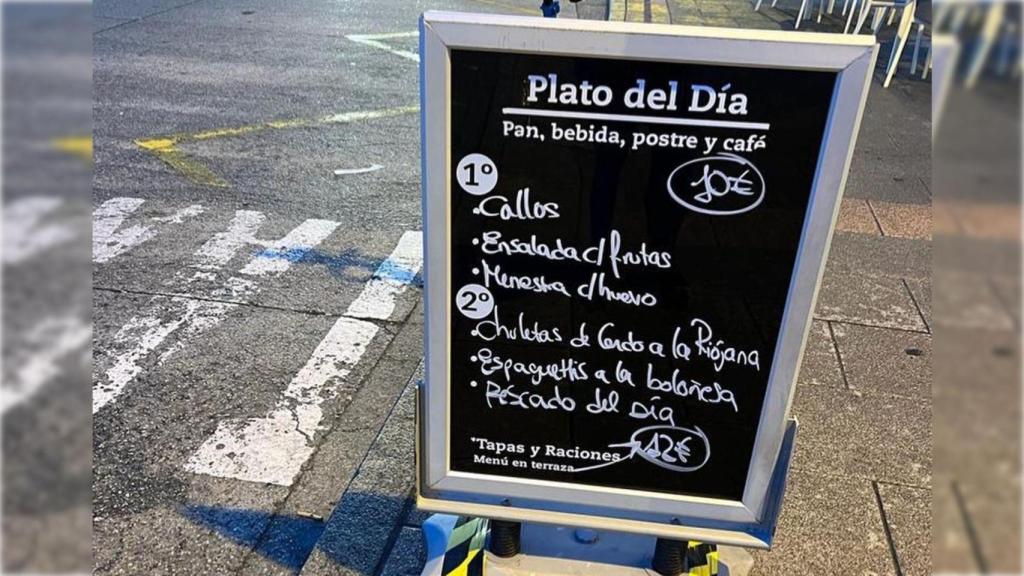 Plato del Día
Pan, bebida, postre y café
10€
1º
·Callos
·Ensalada c/frutas
·Menestra c/huevo
2º
·Chuletas de Cerdo a la Riojana
·Espaguettis a la boloñesa
·Pescado del Día
*Tapas y Raciones
Menú en terraza
12€